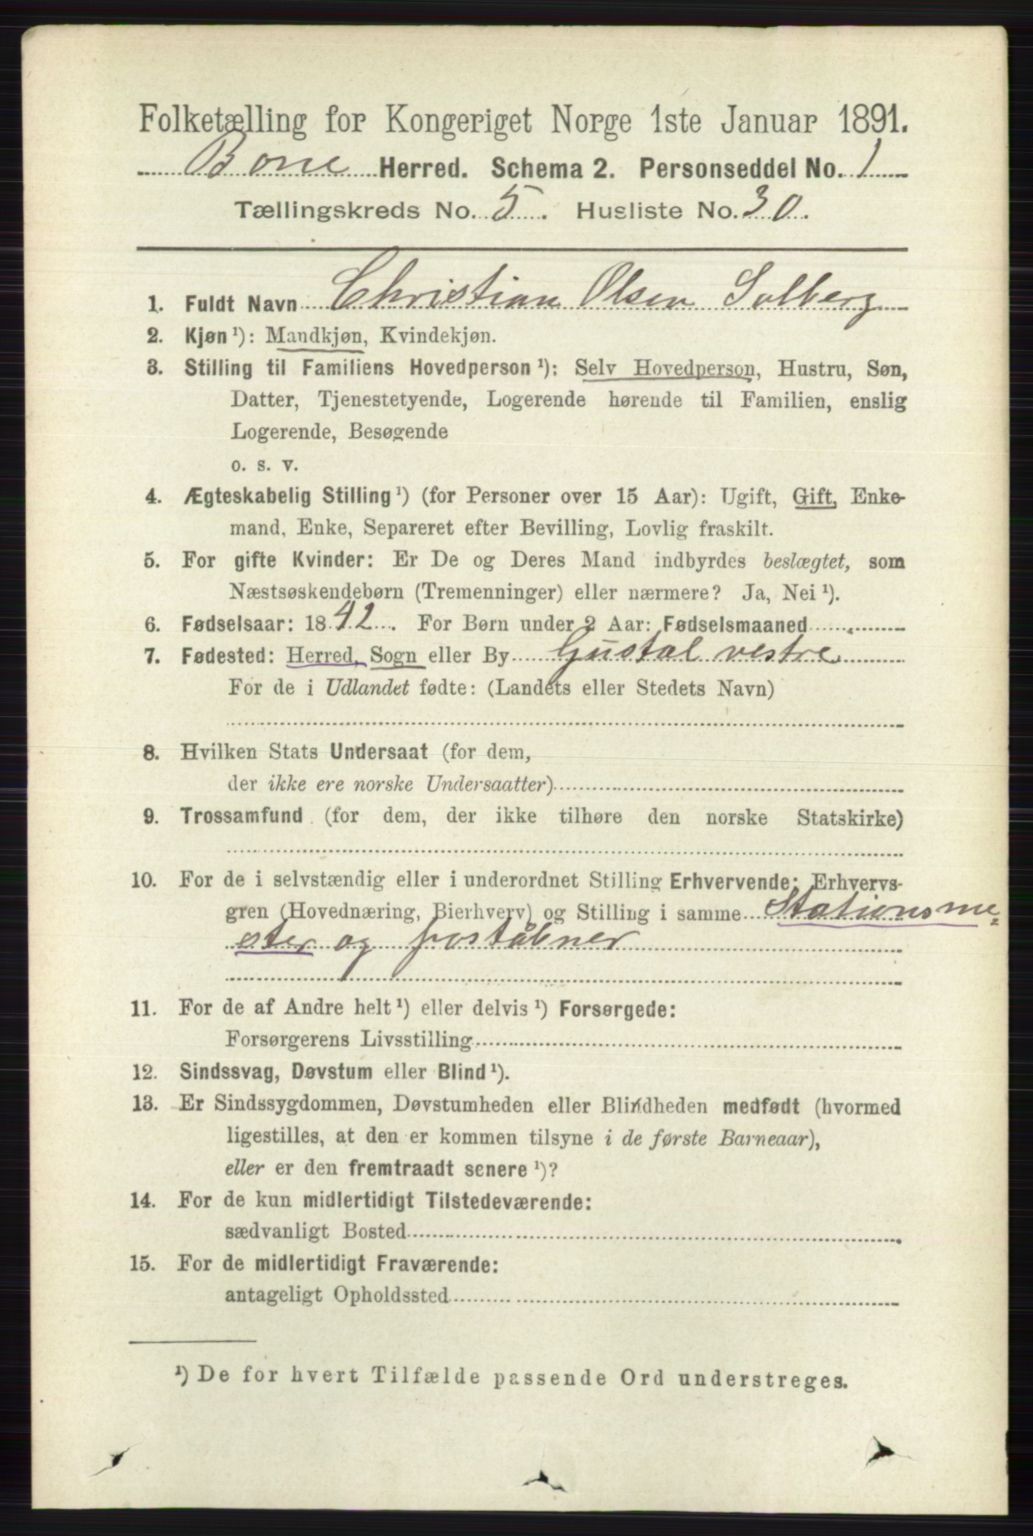 Folketælling for Kongeriget Norge 1ste Januar 1891.
Borre Herred. Schema 2. Personseddel No. 1
Tællingskreds No. 5. Husliste No. 30.
1. Fuldt Navn Christian Olsen Solberg
2. Kjøn ¹): Mandkjøn, Kvindekjøn.
3. Stilling til Familiens Hovedperson ¹): Selv Hovedperson, Hustru, Søn,
Datter, Tjenestetyende, Logerende hørende til Familien, enslig
Logerende, Besøgende
o. s. v.
4. Ægteskabelig Stilling ¹) (for Personer over 15 Aar): Ugift, Gift, Enke-
mand, Enke, Separeret efter Bevilling, Lovlig fraskilt.
5. For gifte Kvinder: Er De og Deres Mand indbyrdes beslægtet, som
Næstsøskendebørn (Tremenninger) eller nærmere? Ja, Nei ¹).
6. Fødselsaar: 1842. For Børn under 2 Aar: Fødselsmaaned
7. Fødested: Herred, Sogn eller By vestre
For de i Udlandet fødte: (Landets eller Stedets Navn)
8. Hvilken Stats Undersaat (for dem,
der ikke ere norske Undersaatter)
9. Trossamfund (for dem, der ikke tilhøre den norske Statskirke)
10. For de i selvstændig eller i underordnet Stilling Erhvervende: Erhvervs-
gren (Hovednæring, Bierhverv) og Stilling i samme Stationsme=
ster og poståbner
11. For de af Andre helt ¹) eller delvis ¹) Forsørgede:
Forsørgerens Livsstilling
12. Sindssvag, Døvstum eller Blind ¹).
13. Er Sindssygdommen, Døvstumheden eller Blindheden medfødt (hvormed
ligestilles, at den er kommen tilsyne i de første Barneaar),
eller er den fremtraadt senere ¹)?
14. For de kun midlertidigt Tilstedeværende:
sædvanligt Bosted
15. For de midlertidigt Fraværende:
antageligt Opholdssted
¹) De for hvert Tilfælde passende Ord understreges.